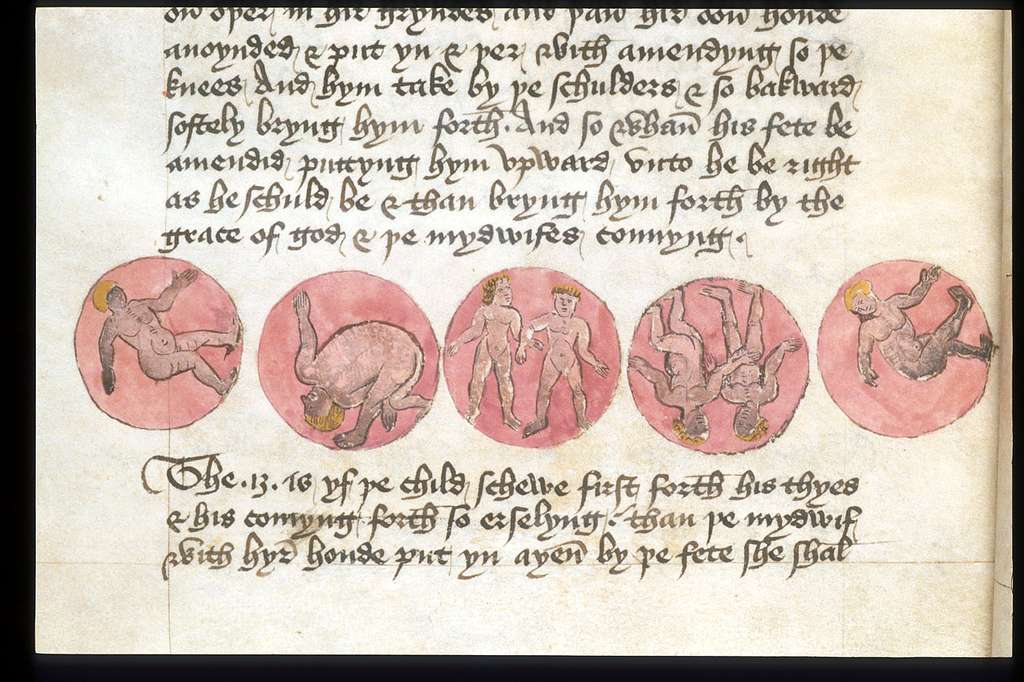 on oþer in hir gryndes and þan hir oon honde
anoynded & put yn & þer with amendyng so þe
knees And hym take by þe schulders & so bakward
softely bryng hym forth. And so whan his fete be
amendid puttyng hym vpward vnto he be right
as he schuld be & than bryng hym forth by the
grace of god & þe mydwifes connyng.
The .12. is yf þe child schewe first forth his thyes
& his comyng forth so erselyng. than þe mydwif
with hyr honde put yn ayen by þe fete she shal